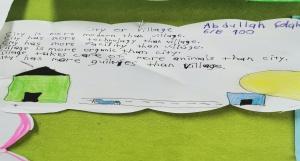 City or Village
Abdullah
6/B 100
City is more modern than village.
City has more technology than village.
City has more facility than village.
Village is more organic than city.
Village takes care of more animals than city.
City has more than village.